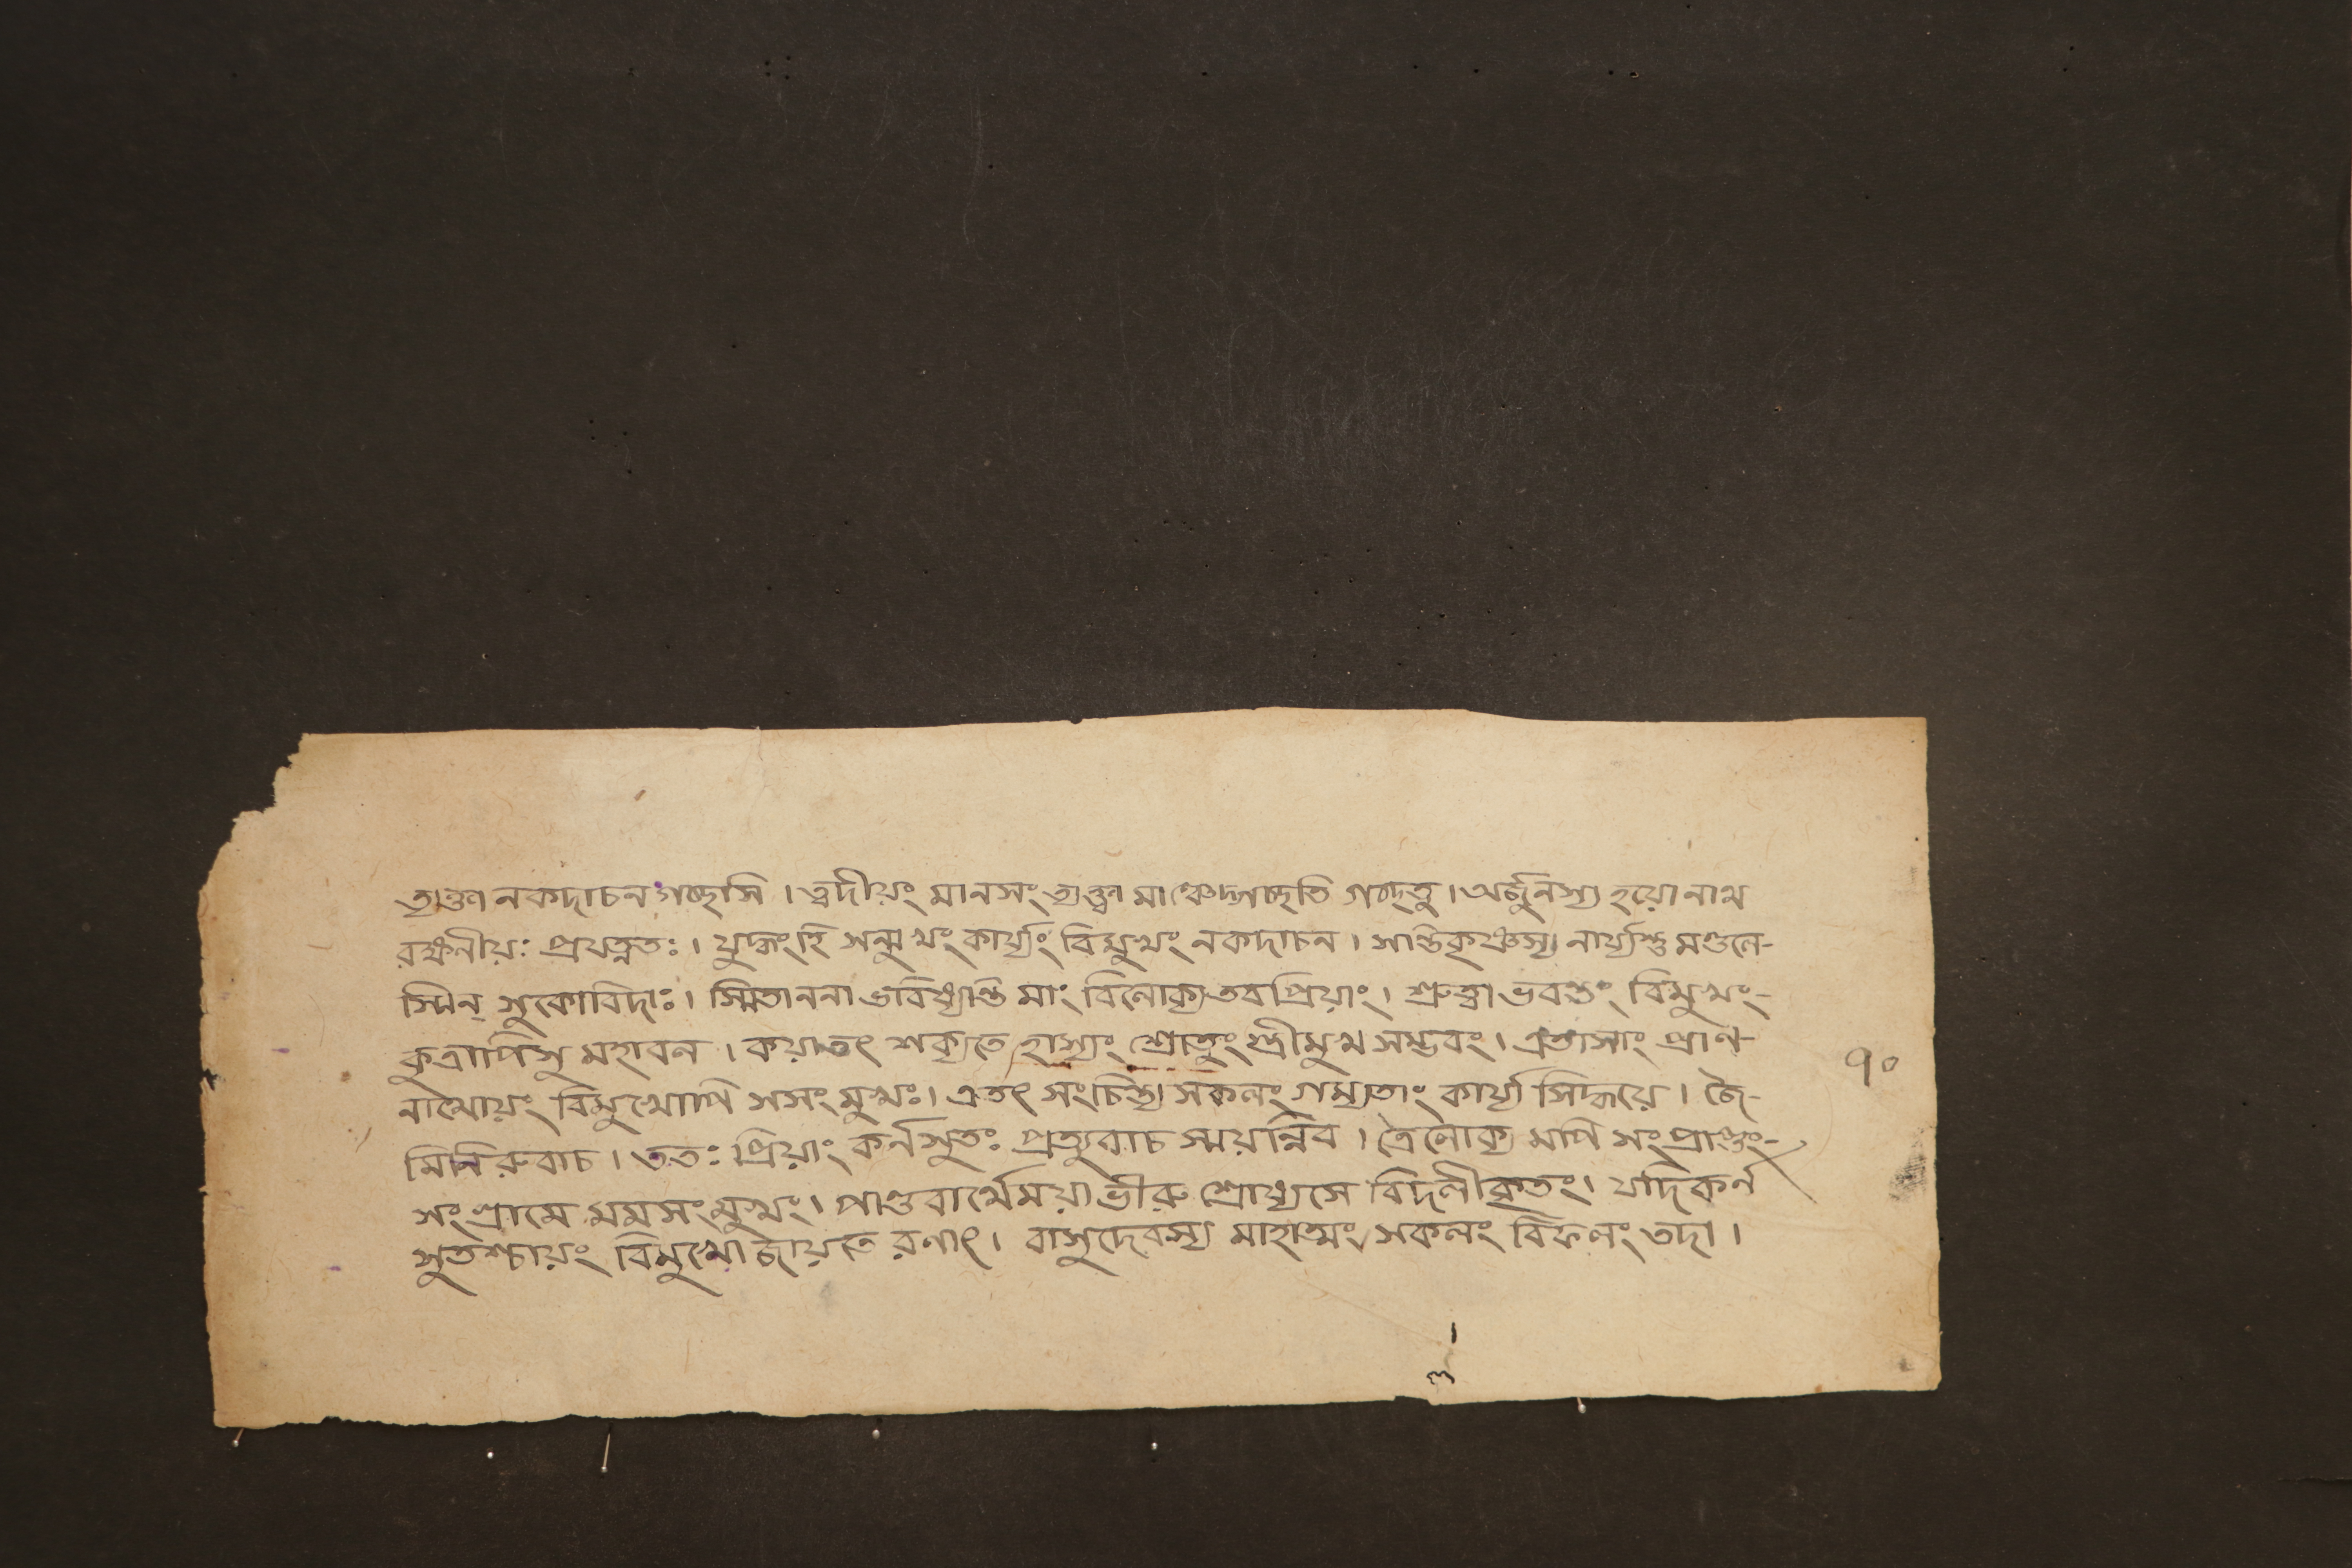 ত্যক্ত্বা নকদাচন গচ্ছসি । ত্বদীয়ং মানসং ত্যক্ত্বা মাঞ্চেদ্গচ্ছতি গচ্ছতু । অর্জুনস্য হয়ো নাথ
রক্ষনীয়ঃ প্রযত্নতঃ । যুদ্ধংহি সন্মুখং কার্য্যং বিমুখং নকদাচন । সান্তিকৃষ্ণস্য নার্য্যস্তু মণ্ডলে-
স্মিন্ সুকোবিদাঃ । স্মিতাননা ভবিষ্যন্তি মাং বিলোক্য তবপ্রিয়াং । শ্রুত্বা ভবন্তং বিমুখং-
কুত্রাপিসু মহাবল । কয়াতৎ শক্যতে হাস্যং শ্রোতুং স্ত্রীমুখ সম্ভবং । এতাসাং প্রাণ-
নাথোয়ং বিমুখোপি সসংমুখঃ । এতৎ সংচিন্ত্য সকলং গম্যতাং কার্য্য সিদ্ধয়ে । জৈ-
মিনিরুবাচ । ততঃ প্রিয়াং কর্নসুতঃ প্রত্যুবাচ স্ময়ন্নিব । ত্রৈলোক্য মপি সংপ্রাপ্তং-
সংগ্রামে মমসংমুখং । পাণ্ডবার্থেময়া ভীরু শ্রোষ্যসে বিদলীকৃতং । যদিকর্ন
সুতশ্চায়ং বিমুখো জায়তে রণাৎ । বাসুদেবস্য মাহাত্মং সকলং বিফলং তদা ।
৭০